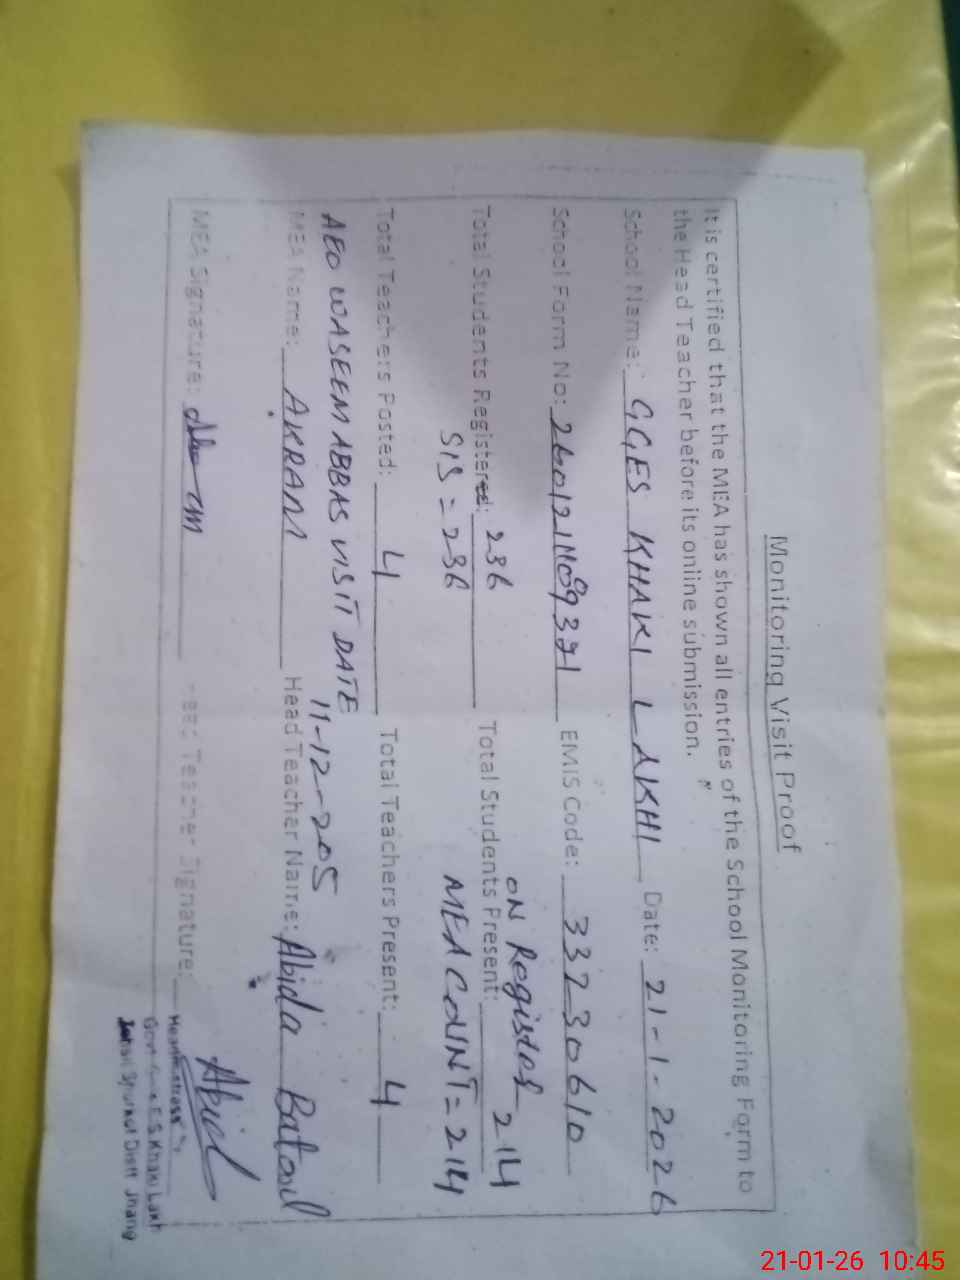 Monitoring Visit Proof
It is certified that the MEA has shown all entries of the School Monitoring Form to
the Head Teacher before its online submission.
School Name: GGES KHAKI LAKHI Date: 21-1-2026
School Form No: EMIS Code: 33230610
ON Register
Total Students Registered: 236 Total Students Present: 214
SIS = 236 MEA COUNT = 214
Total Teachers Posted: 4 Total Teachers Present: 4
AEO WASEEM ABBAS VISIT DATE 11-12-205
MEA Name: AKRAM Head Teacher Name: Abida Batool
MEA Signature: Head Teacher Signature: Abid
Headmistress
Govt. E.S. Khaki Lakh
Distt Jhang
21-01-26 10:45